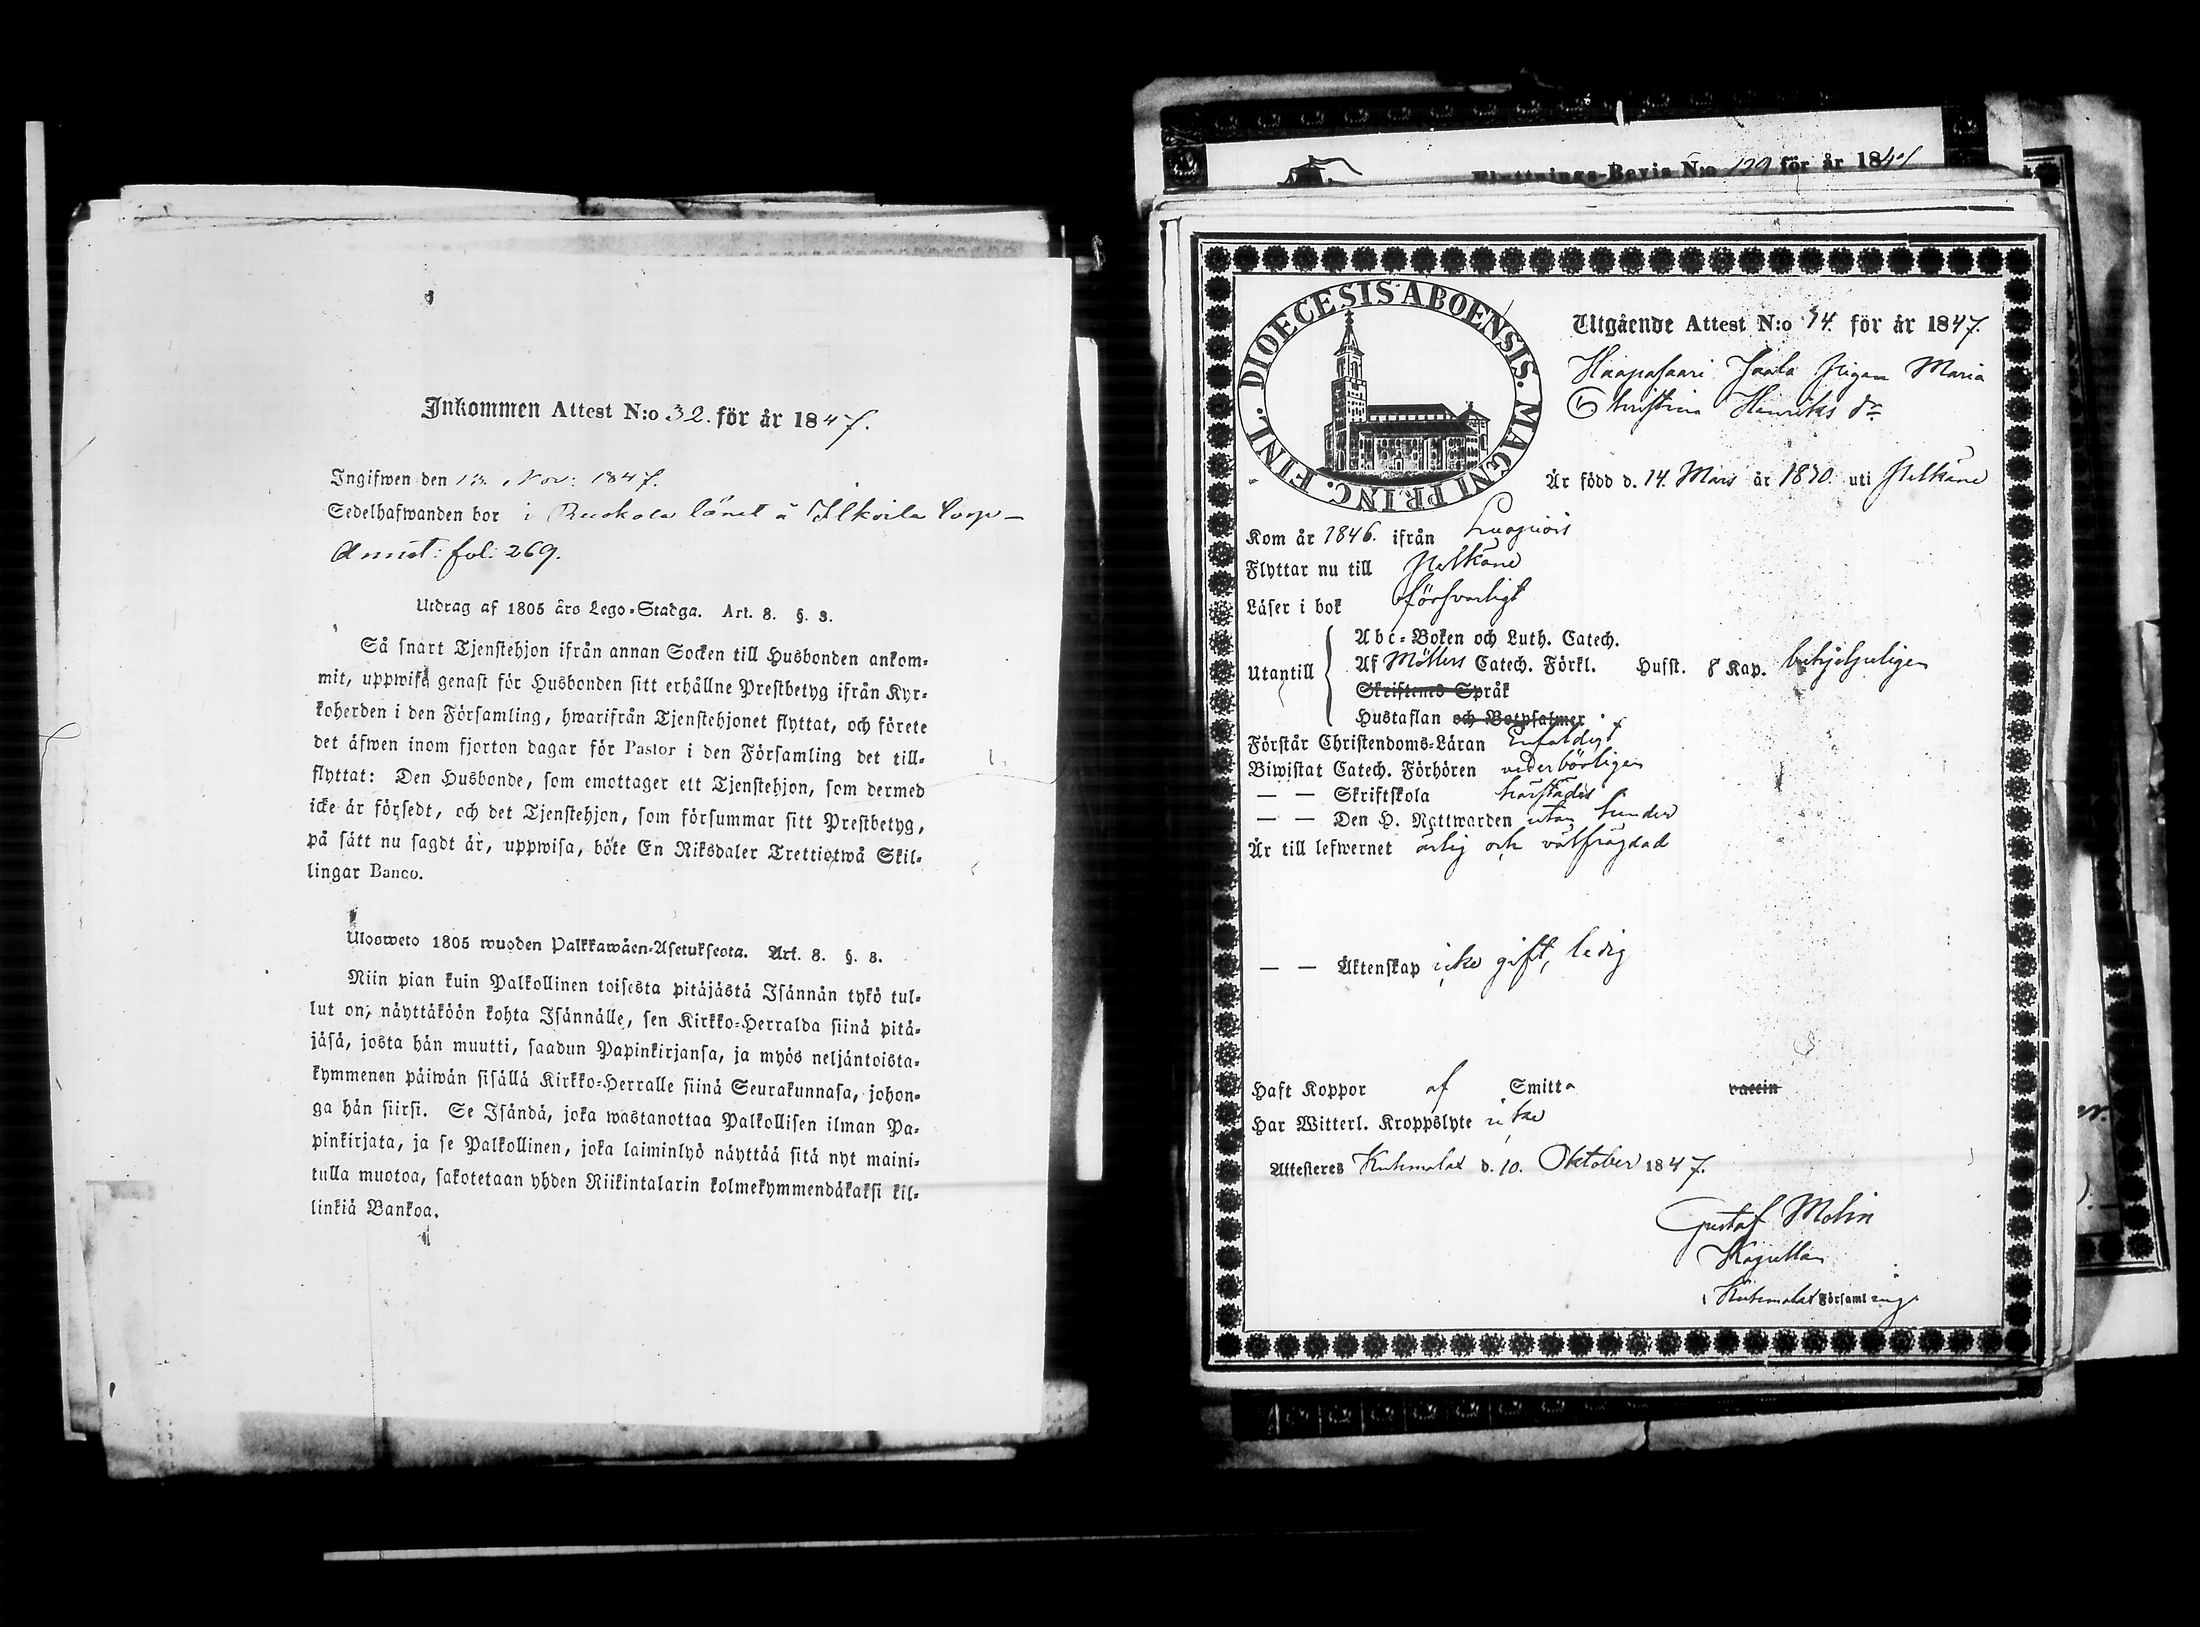 Inkommen Attest N:o 32. för år 1847.
Ingifwen den 13. Nov: 1847.
Sedelhafwanden bor i länet å
fol: 269.
Utdrag af 1805 års Lego-Stadga. Art. 8. §. 3.
Så snart Tjenstehjon ifrån annan Socken till Husbonden ankom-
mit, uppwise genast för Husbonden sitt erhållne Prestbetyg ifrån Kyr-
koherden i den Församling, hwarifrån Tjenstehjonet flyttat, och förete
det äfwen inom fjorton dagar för Pastor i den Församling det till-
flyttat: Den Husbonde, som emottager ett Tjenstehjon, som dermed
icke är försedt, och det Tjenstehjon, som försummar sitt Prestbetyg,
på sätt nu sagdt är, uppwisa, böte En Riksdaler Trettiotwå Skil-
lingar Banco.
Ulosweto 1805 wuoden Palkkawäen-Asetuksesta. Art. 8. §. 3.
Niin pian kuin Palkollinen toisesta pitäjästä Isännän tykö tul-
lut on, näyttäköön kohta Isännälle, sen Kirkko-Herralda siinä pitä-
jäsä, josta hän muutti, saadun Papinkirjansa, ja myös neljäntoista-
kymmenen päiwän sisällä Kirkko-Herralle siinä Seurakunnasa, johon-
ga hän siirsi. Se Isändä, joka wastanottaa Palkollisen ilman Pa-
pinkirjata, ja se Palkollinen, joka laiminlyö näyttää sitä nyt maini-
tulla muotoa, sakotetaan yhden Riikintalarin kolmekymmendäkaksi kil-
linkiä Bankoa.
Flyttnings-Bevis N:o 129 för år 184
DIOECESIS ABOENSIS. MAGNI PRINC. FINL.
Utgående Attest N:o 34. för år 1847.
Haapasaari Pigan Maria
Christina Henriks dr
Är född d. 14. Mars år 1830. uti Pelkäne
Kom år 1846. ifrån Luopiois
Flyttar nu till Pelkäne
Läser i bok försvarligt
Utantill
Abc-Boken och Luth. Catech.
Af Möllers Catech. Förkl. Husst. 8 Kap. behjelpeligen
Skriftenes Språk
Hustaflan och Botpsalmer
Förstår Christendoms-Läran Enfaldigt
Biwistat Catech. Förhören vederbörligen
— — Skriftskola härstädes
— — Den H. Nattwarden utan hinder
Är till lefwernet ärlig och välfrägdad
— — Äktenskap icke gift, ledig
Haft Koppor af Smitta vaccin
Har Witterl. Kroppslyte icke
Attesteres Kuhmalax d. 10. Oktober 1847.
Gustaf Molin
Kapellan
i Kuhmalax Församling.